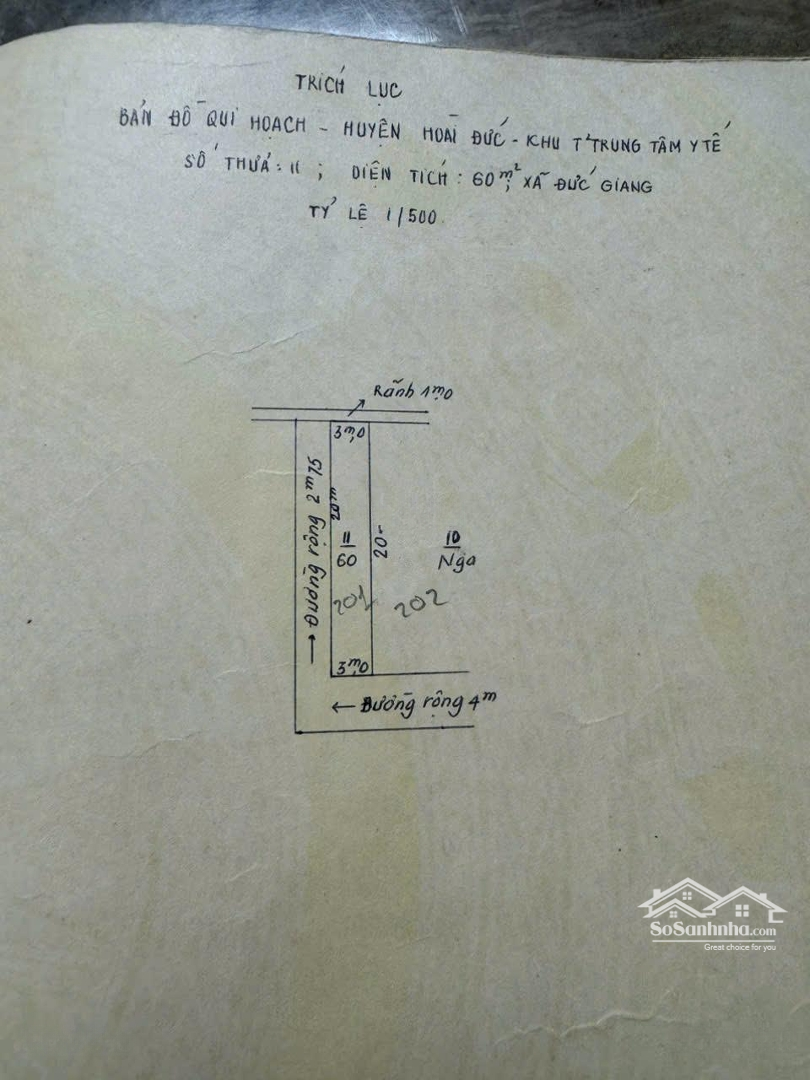 TRÍCH LỤC
BẢN ĐỒ QUI HOẠCH - HUYỆN HOÀI ĐỨC - KHU TT TRUNG TÂM Y TẾ
SỐ THỬA: 11 ; DIỆN TÍCH : 60 m²; XÃ ĐỨC GIANG
TỶ LỆ 1/500
Rãnh 1m,0
3m,0
Đường rộng 2m,5
20m
20-
11
60
10
Nga
201
202
3m,0
← Đường rộng 4m
SoSanhnha.com
Great choice for you